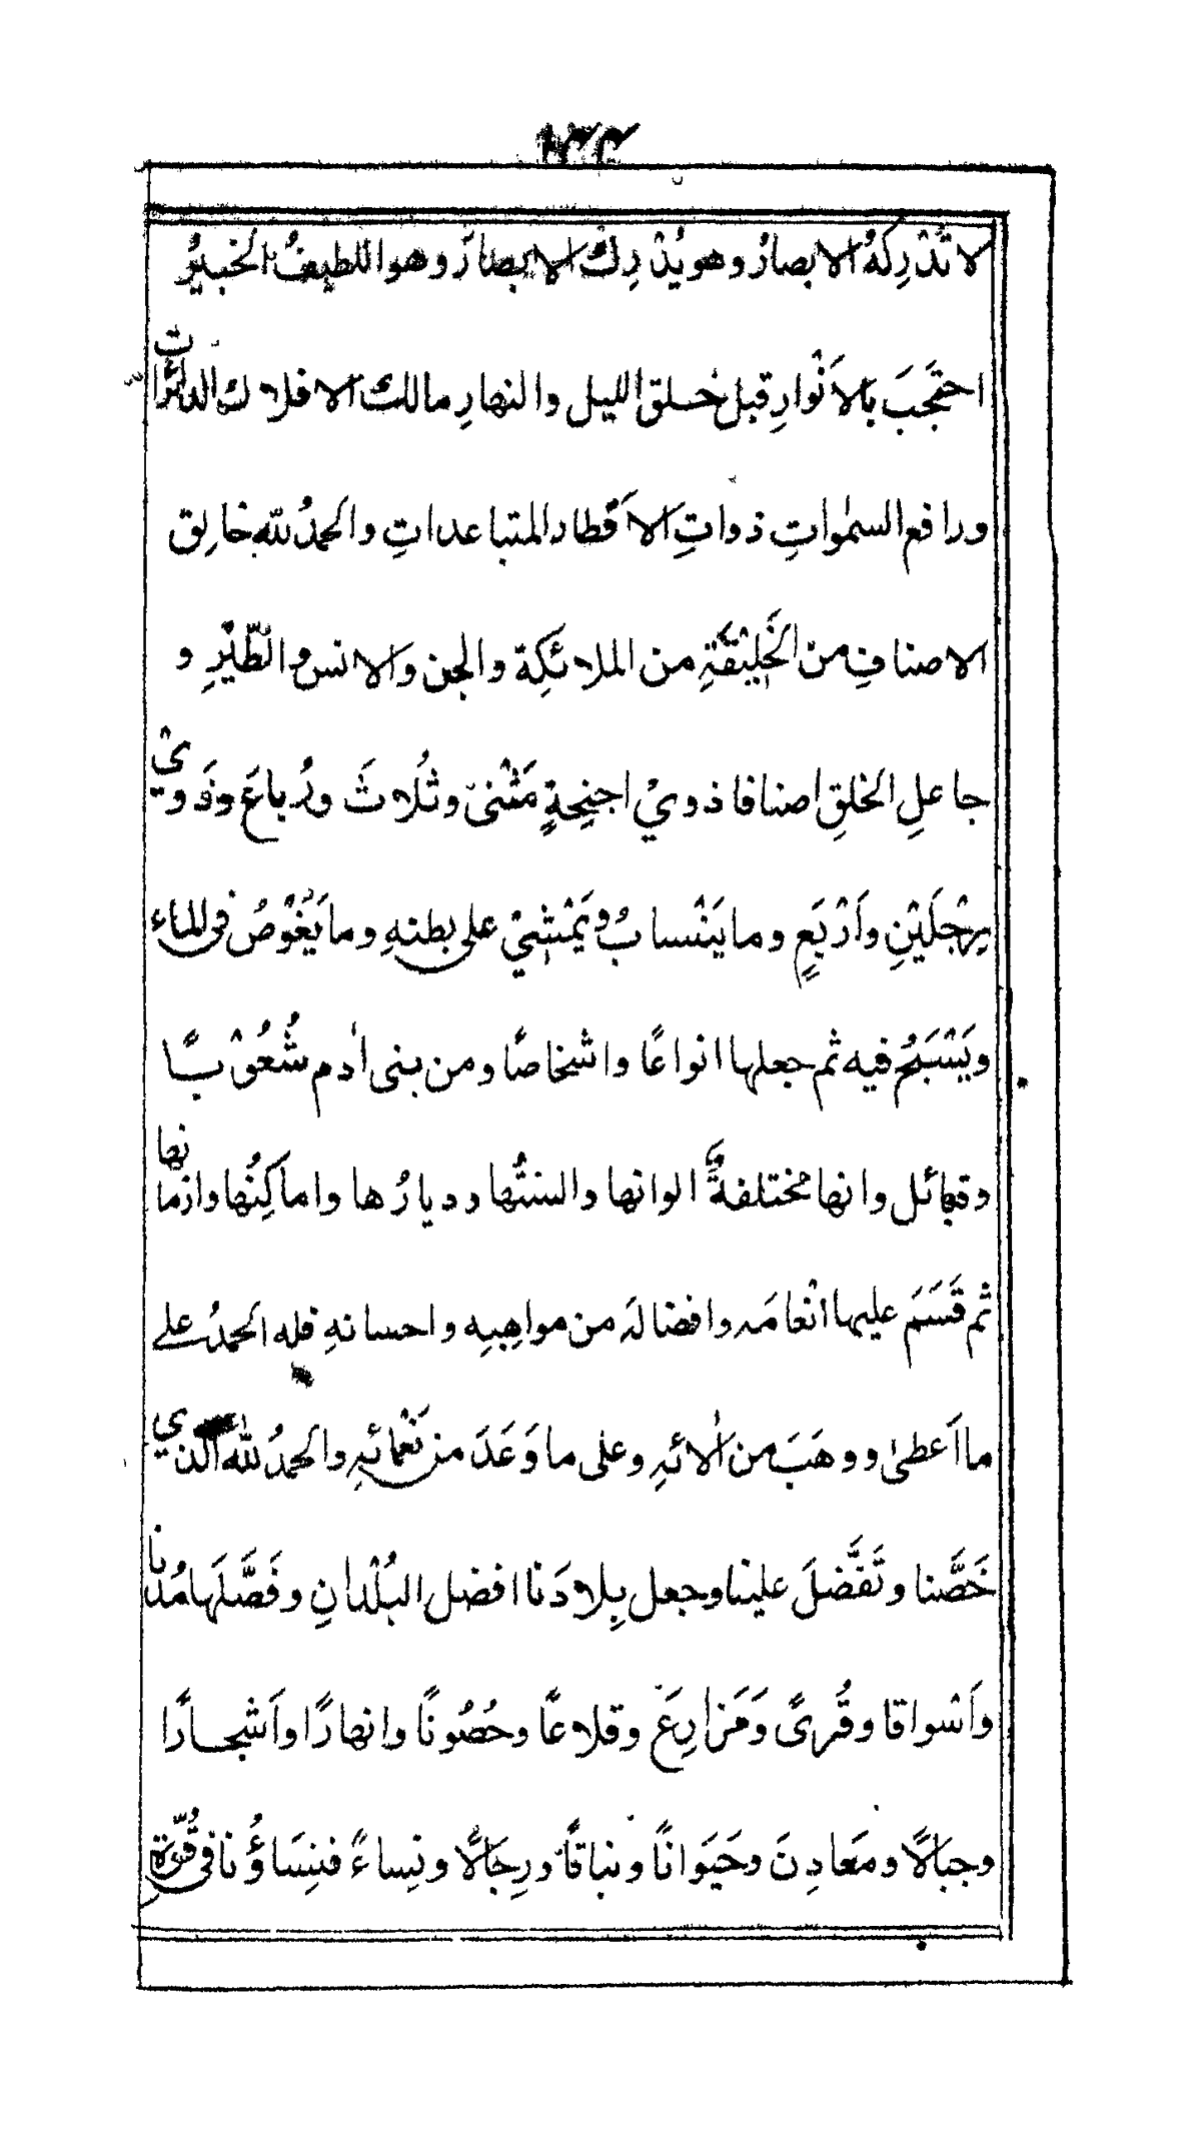 لا تُدْرِكهُ الابصارُ وهو يُدْرِكُ الابصارَ وهو اللطيفُ الخبيرُ
احتَجَبَ بالاَنْوارِ قبل خلق الليل والنهارِ مالك الافلاك الدائرات
ورافع السمٰواتِ ذواتِ الاَقطار المتباعداتِ والحمدُ لله خالِق
الاصنافِ من الخَلِيْقَةِ من الملائكِة والجن والانس والطَّيْرِ و
جاعلِ الخلقِ اصنافا ذويْ اجنِحةٍ مَثْنىٰ وثُلاثَ ورُباعَ وذَويْ
رِجْلَيْنِ واَرْبَعٍ وما يَنْسابُ ويَمْشِيْ على بطنهِ وما يَغُوْصُ فى الماء
ويَسْبَحُ فيه ثم جعلها انواعًا واشخاصًا ومن بنى اٰدم شُعُوْبًا
وقبائل وانها مختلفةٌ الوانها والسنتُها وديارُها واماكِنُها وازمانها
ثم قَسَمَ عليها انْعامَه وافضالَه من مواهِبِه واحسانهِ فله الحمدُ على
ما اَعطىٰ ووهَبَ من اٰلائهِ وعلى ما وَعَدَ من نَعْمائهِ والحمدُ لله الذي
خَصَّنا وتَفَضَّلَ علينا وجعل بِلادَنا افضل البُلْدانِ وفَصَّلَها مُدُنا
واَسْواقا وقُرىً ومَزارِعَ وقلاعًا وحُصُونًا وانهارًا واَشجارًا
وجبالًا ومَعادِنَ وحَيَوانًا ونباتًا ورِجَالًا ونِساءً فنِسَاؤُنا فى قُرّة